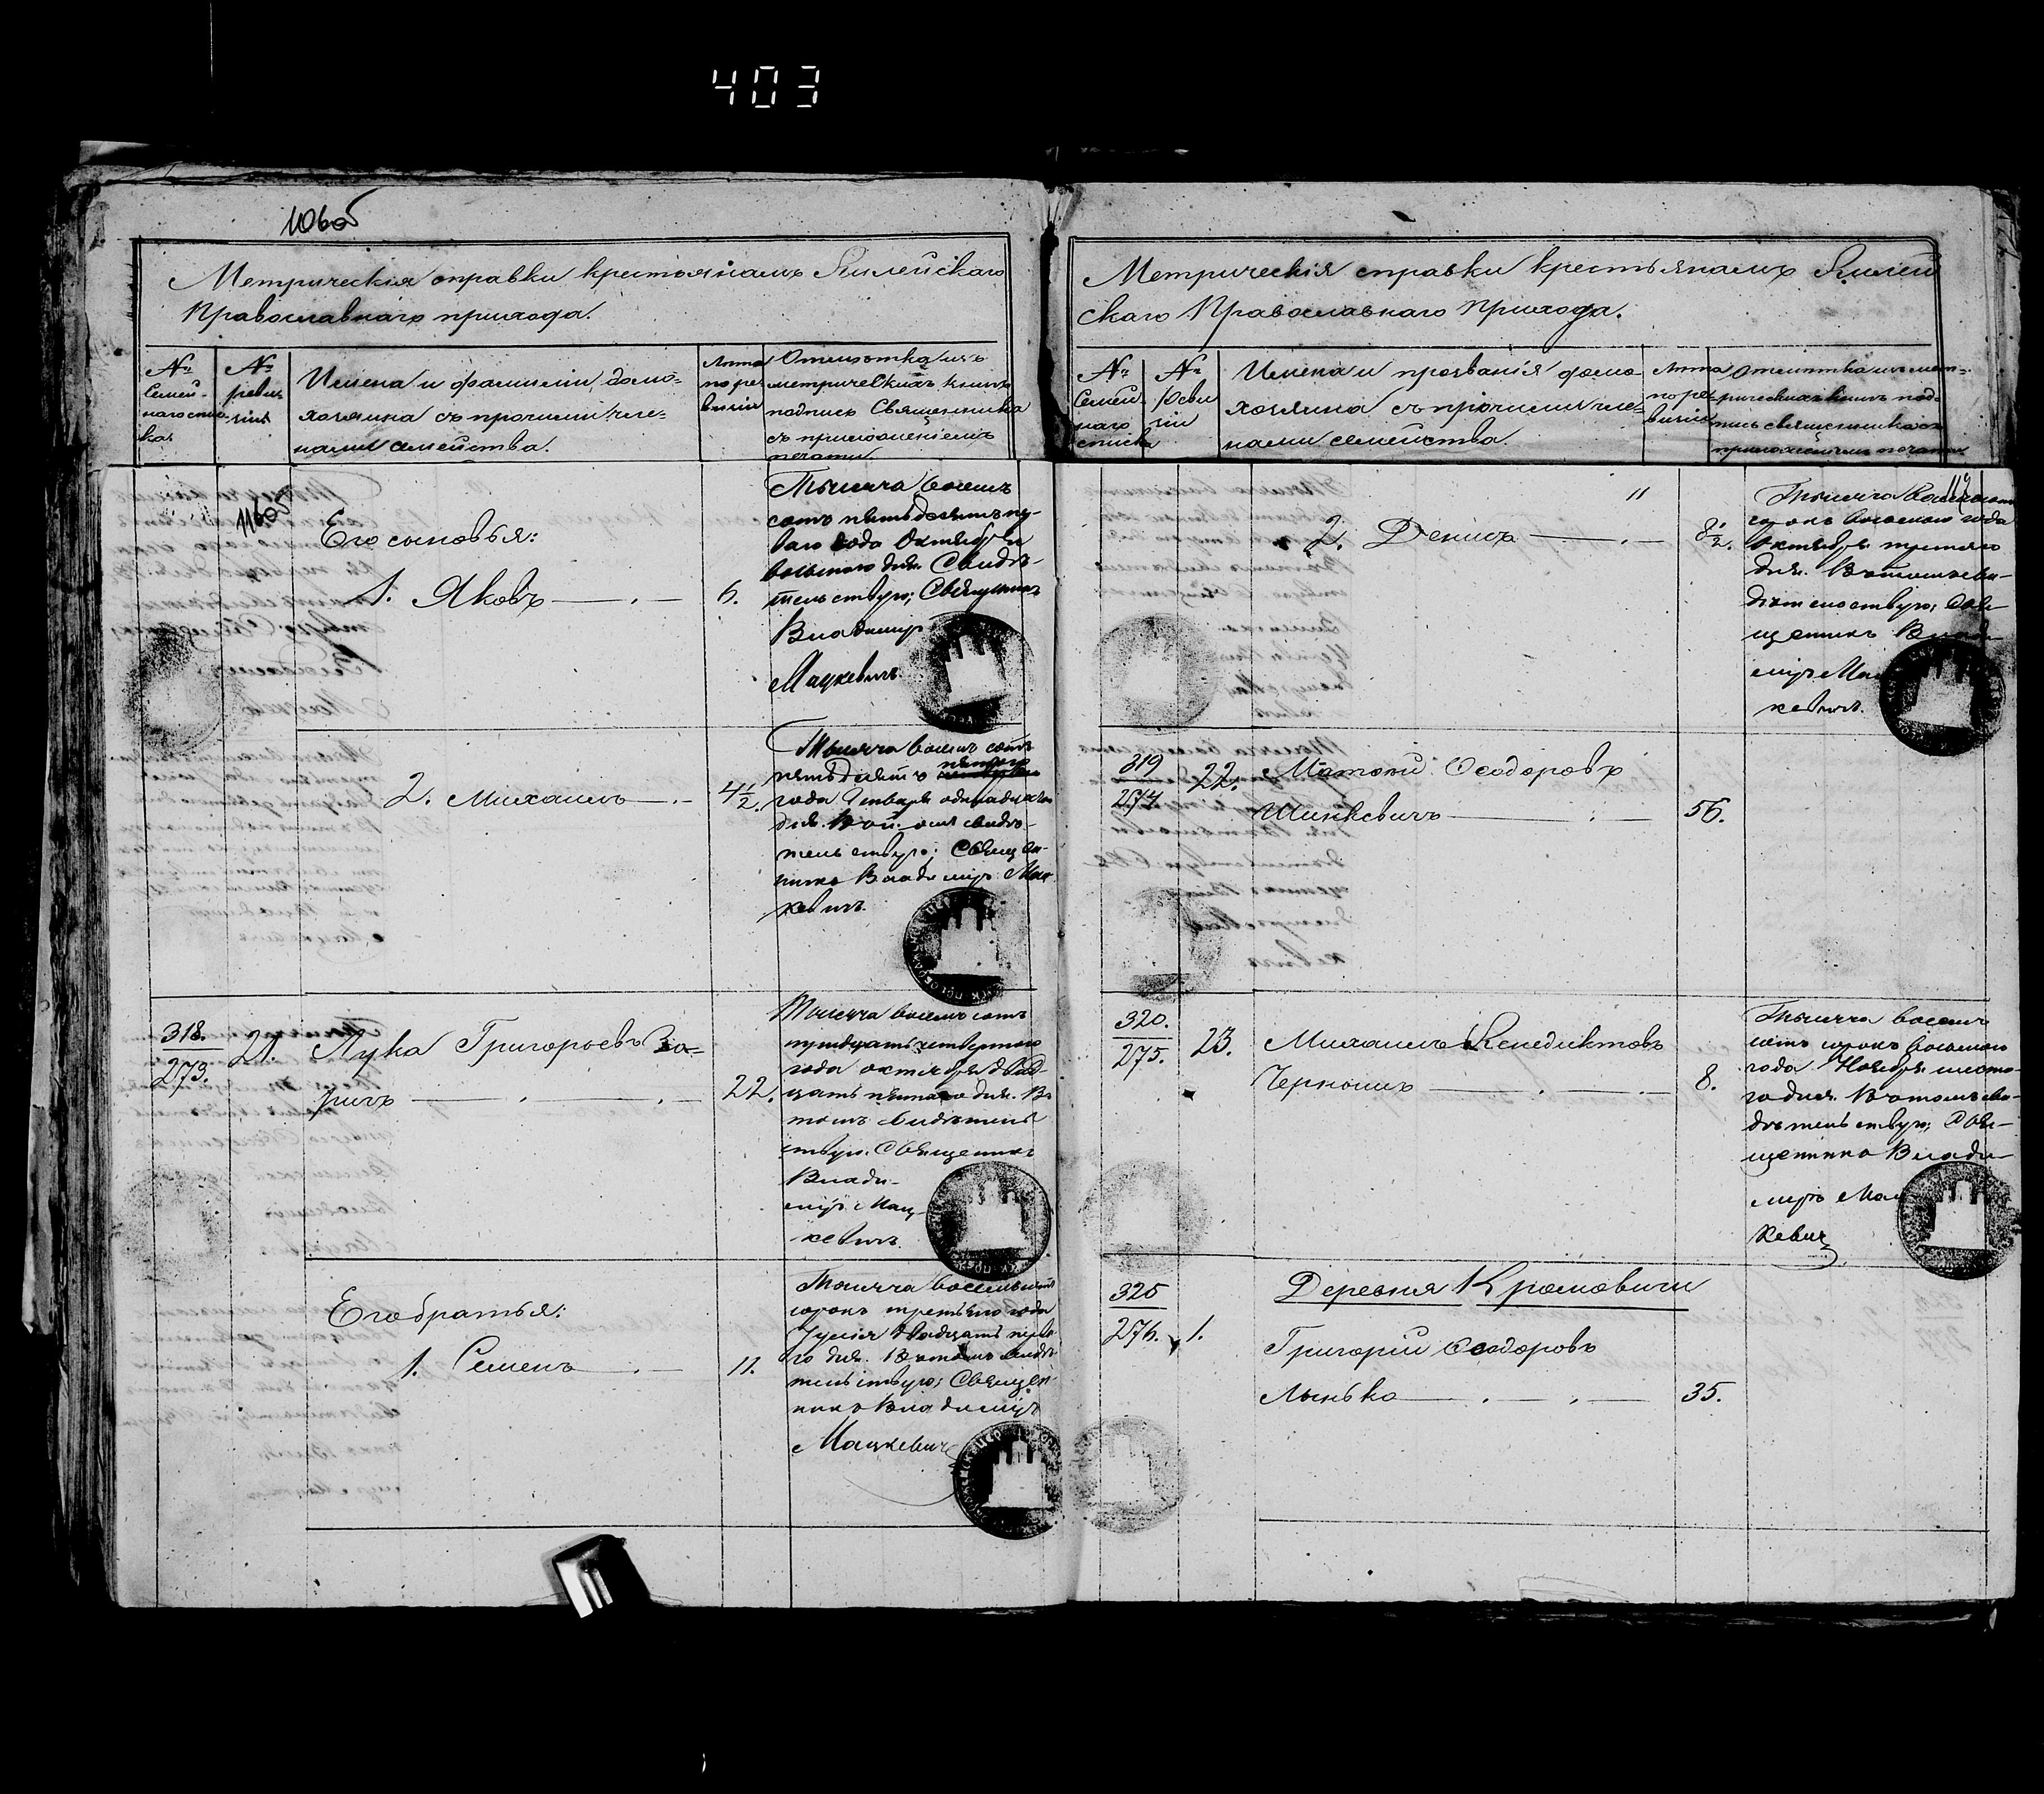 403
110об
Метрическія справки крестьянамъ
Православнаго прихода.
№
Семей-
наго спис-
ка
№
реви-
зіи
Имена и фамиліи домо-
хозяина съ прочими чле-
нами семейства.
Лета
по ре-
визіи
Отметка изъ
метрическихъ книгъ
подпись Священника
съ приложеніемъ
печати.
Его сыновья:
1. Яковъ 6.
Тысяча восемь
сотъ пятьдесятъ пер-
ваго года Октября
восьмаго дня. Свидѣ-
тельствую; Священникъ
Владимір
Мацкевичъ.
2. Михаилъ 4 1/2.
Тысяча восемь сотъ
пятьдесят
года Генваря одинадцатаго
дня. свидѣ-
тельствую; Священ-
никъ Владимір Мац-
кевичъ.
318.
273.
21. Лука Григорьевъ За-
22.
Тысяча восемь сотъ
тридцать четвертаго
года октября двад-
цать пятаго дня. Въ
томъ свидѣтель
ствую. Священникъ
Влади-
міръ Мац-
кевичъ.
Его братья:
1. Семенъ 11.
Тысяча восемь сотъ
сорокъ третьяго года
Іулія двадцать перва-
го дня. Въ томъ свидѣ
тельствую; Священ-
никъ Владиміръ
Мацкевичъ
Метрическія справки крестьянамъ
скаго Православнаго Прихода.
№
Семей-
наго
списка
№
Реви
зіи
Имена и прозванія домо-
хозяина съ прочими чле-
нами семейства.
Лета
по ре-
визіи
Отметка изъ мет-
рическихъ книгъ под-
пись священника съ
приложеніемъ печати
2. Денисъ 8 1/2.
Тысяча восемь сотъ
года
Октября третяго
дня. Въ томъ сви-
дѣтельствую; Свя-
щенникъ Влади-
міръ Мац
кевичъ.
319
274
22. Матвей Феодоровъ
Шинкевичъ 56.
320.
275.
23. Михаилъ Бенедиктовъ
8.
Тысяча восемь
сотъ сорокъ восьмаго
года Ноября шесто-
го дня. Въ томъ сви-
дѣтельствую; Свя-
щенникъ Влади-
міръ Мац
кевич
325
276.
1.
Деревня Кромовичи
Григорій Феодоровъ
Лынько 35.